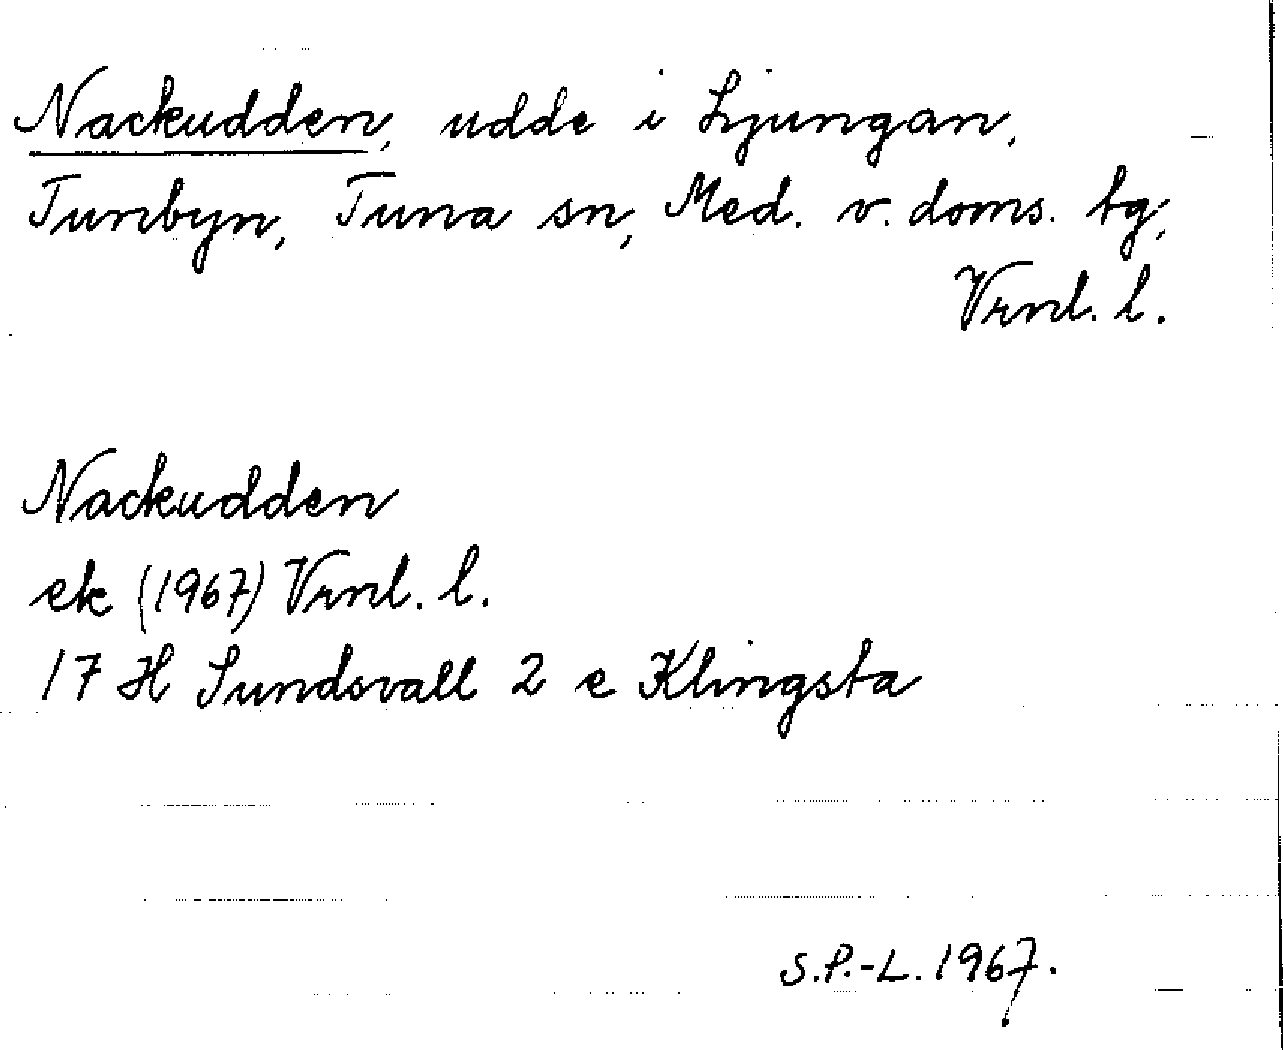 Nackudden, udde i Ljungan,
Tunbyn, Tuna sn, Med. v. doms. tg,
Vrnl. l.
Nackudden
ek (1967) Vrnl. l.
17 H Sundsvall 2 e Klingsta
S.P.-L. 1967.